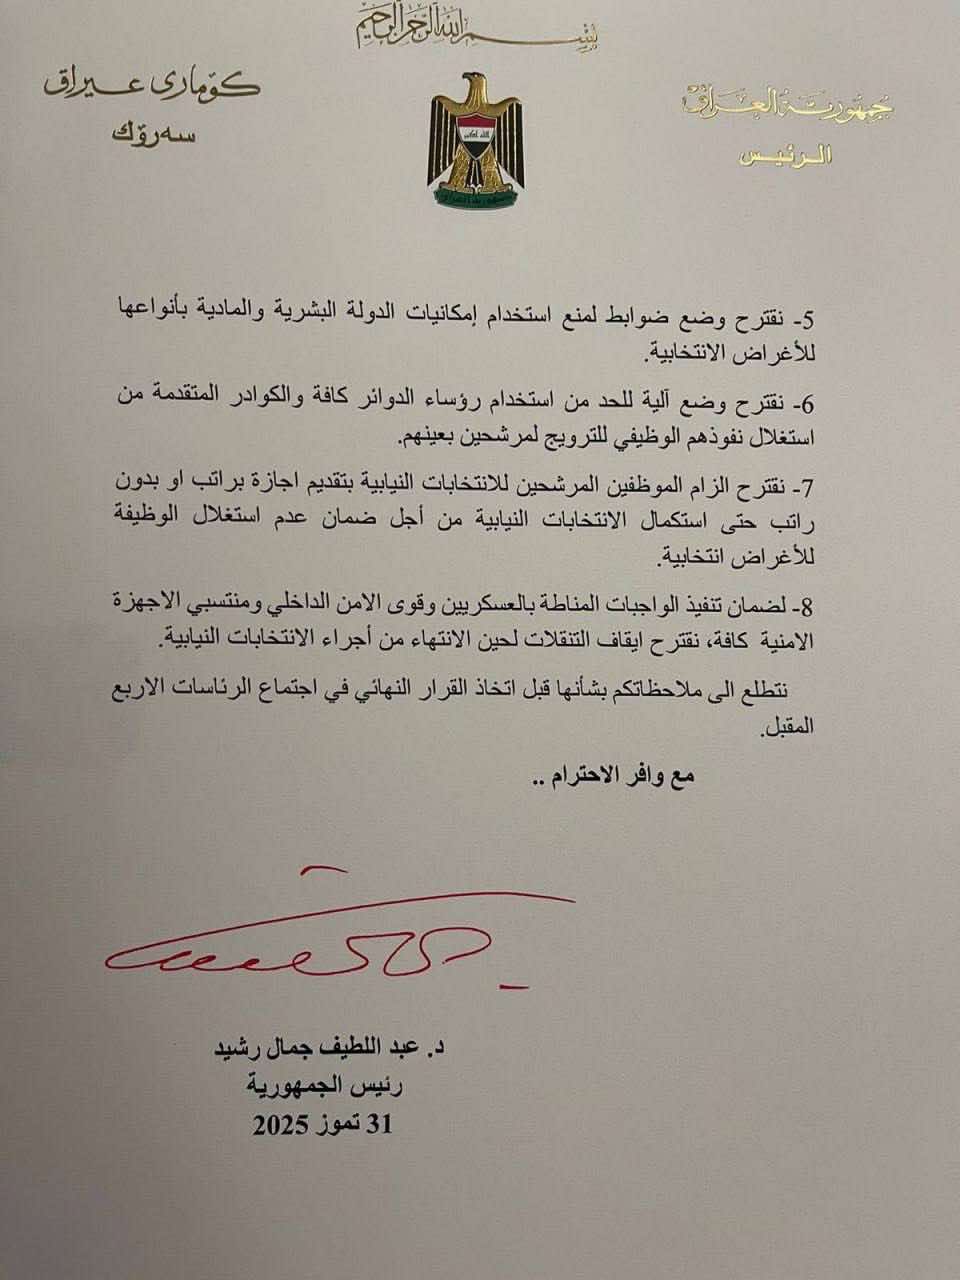 بسم الله الرحمن الرحيم
جمهورية العراق
الرئيس
كۆماری عیراق
سەرۆك
الله اكبر
جمهورية العراق
5- نقترح وضع ضوابط لمنع استخدام إمكانيات الدولة البشرية والمادية بأنواعها
للأغراض الانتخابية.
6- نقترح وضع آلية للحد من استخدام رؤساء الدوائر كافة والكوادر المتقدمة من
استغلال نفوذهم الوظيفي للترويج لمرشحين بعينهم.
7- نقترح الزام الموظفين المرشحين للانتخابات النيابية بتقديم اجازة براتب او بدون
راتب حتى استكمال الانتخابات النيابية من أجل ضمان عدم استغلال الوظيفة
للأغراض انتخابية.
8- لضمان تنفيذ الواجبات المناطة بالعسكريين وقوى الامن الداخلي ومنتسبي الاجهزة
الامنية كافة، نقترح ايقاف التنقلات لحين الانتهاء من أجراء الانتخابات النيابية.
نتطلع الى ملاحظاتكم بشأنها قبل اتخاذ القرار النهائي في اجتماع الرئاسات الاربع
المقبل.
مع وافر الاحترام ..
د. عبد اللطيف جمال رشيد
رئيس الجمهورية
31 تموز 2025